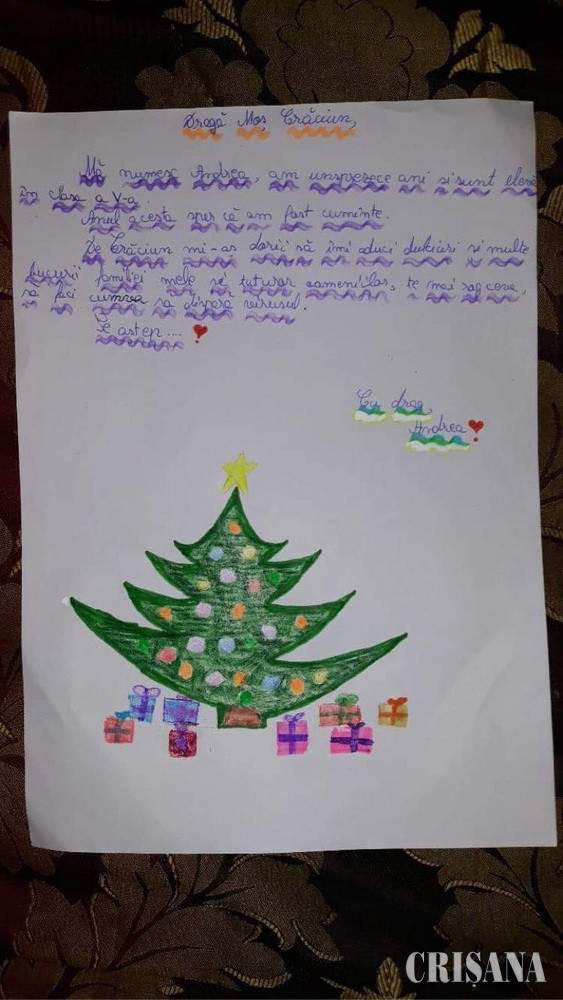 Dragă Moș Crăciun,
Mă numesc Andrea, am unsprezece ani si sunt elevă
în clasa a V-a.
Anul acesta sper că am fost cuminte.
De Crăciun mi-as dori să îmi aduci dulciuri si multe
bucurii familiei mele si tuturor oamenilor, te mai rog ceva,
sa faci cumva sa dispara virusul.
Te astep.... 
Cu drag,
Andrea
CRIȘANA